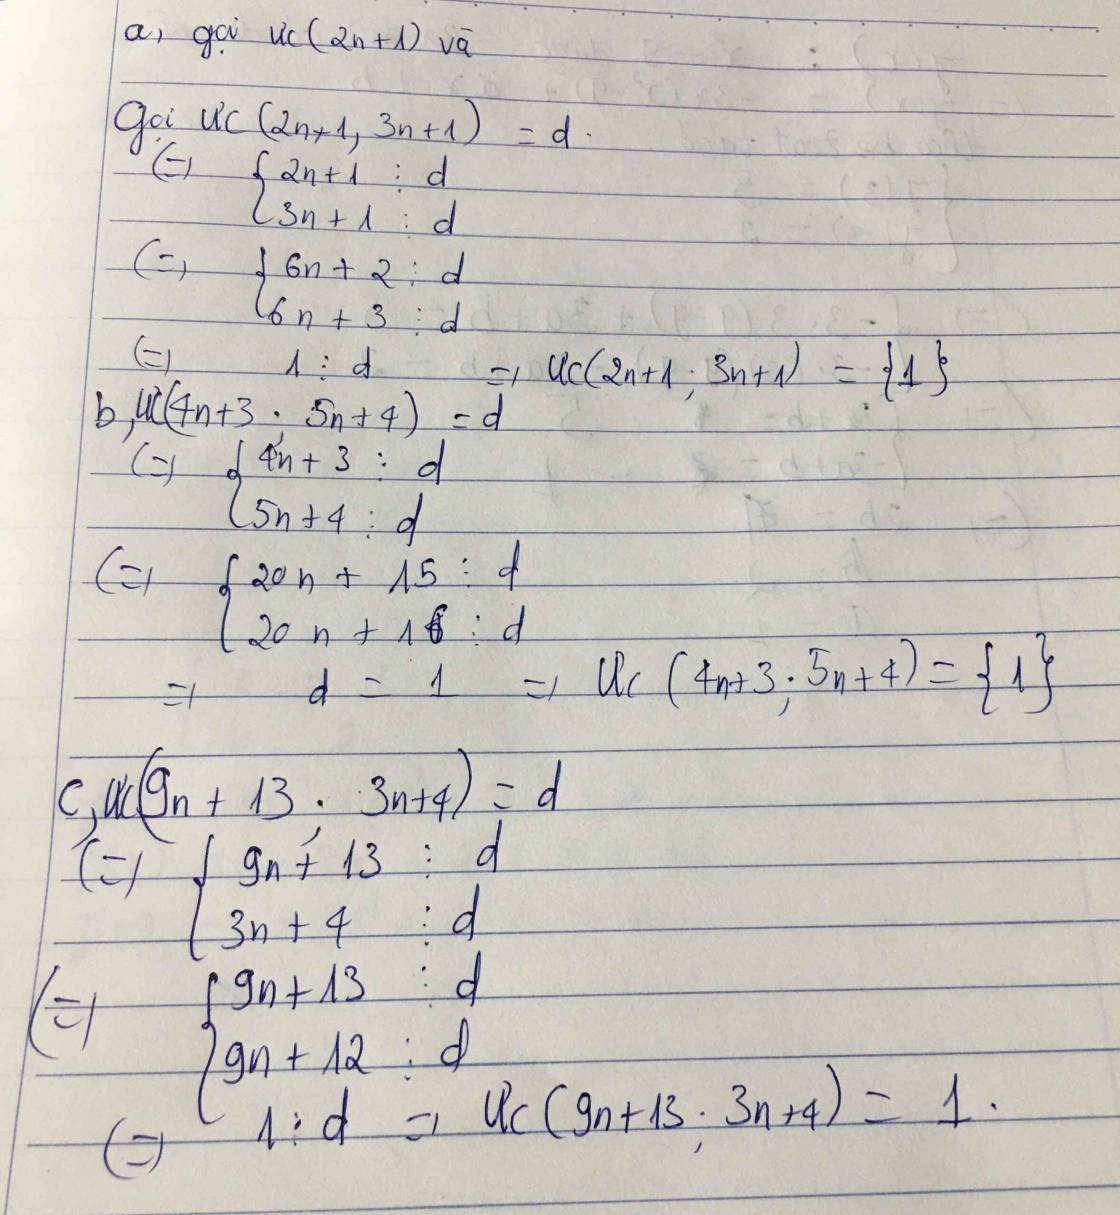 a, gọi ưc(2n+1) và
Gọi ƯC(2n+1, 3n+1) = d.
(=) { 2n+1 ⋮ d
3n+1 ⋮ d
(=) { 6n + 2 ⋮ d
6n + 3 ⋮ d
(=) 1 ⋮ d =) ƯC(2n+1; 3n+1) = {1}
b, ƯC(4n+3; 5n+4) = d
(=) { 4n+3 ⋮ d
5n+4 ⋮ d
(=) { 20n + 15 ⋮ d
20n + 16 ⋮ d
=) d = 1 =) ƯC (4n+3; 5n+4) = {1}
c, ƯC(9n + 13; 3n+4) = d
(=) { 9n + 13 ⋮ d
3n + 4 ⋮ d
(=) { 9n+13 ⋮ d
9n + 12 ⋮ d
(=) 1 ⋮ d =) ƯC(9n+13; 3n+4) = 1.